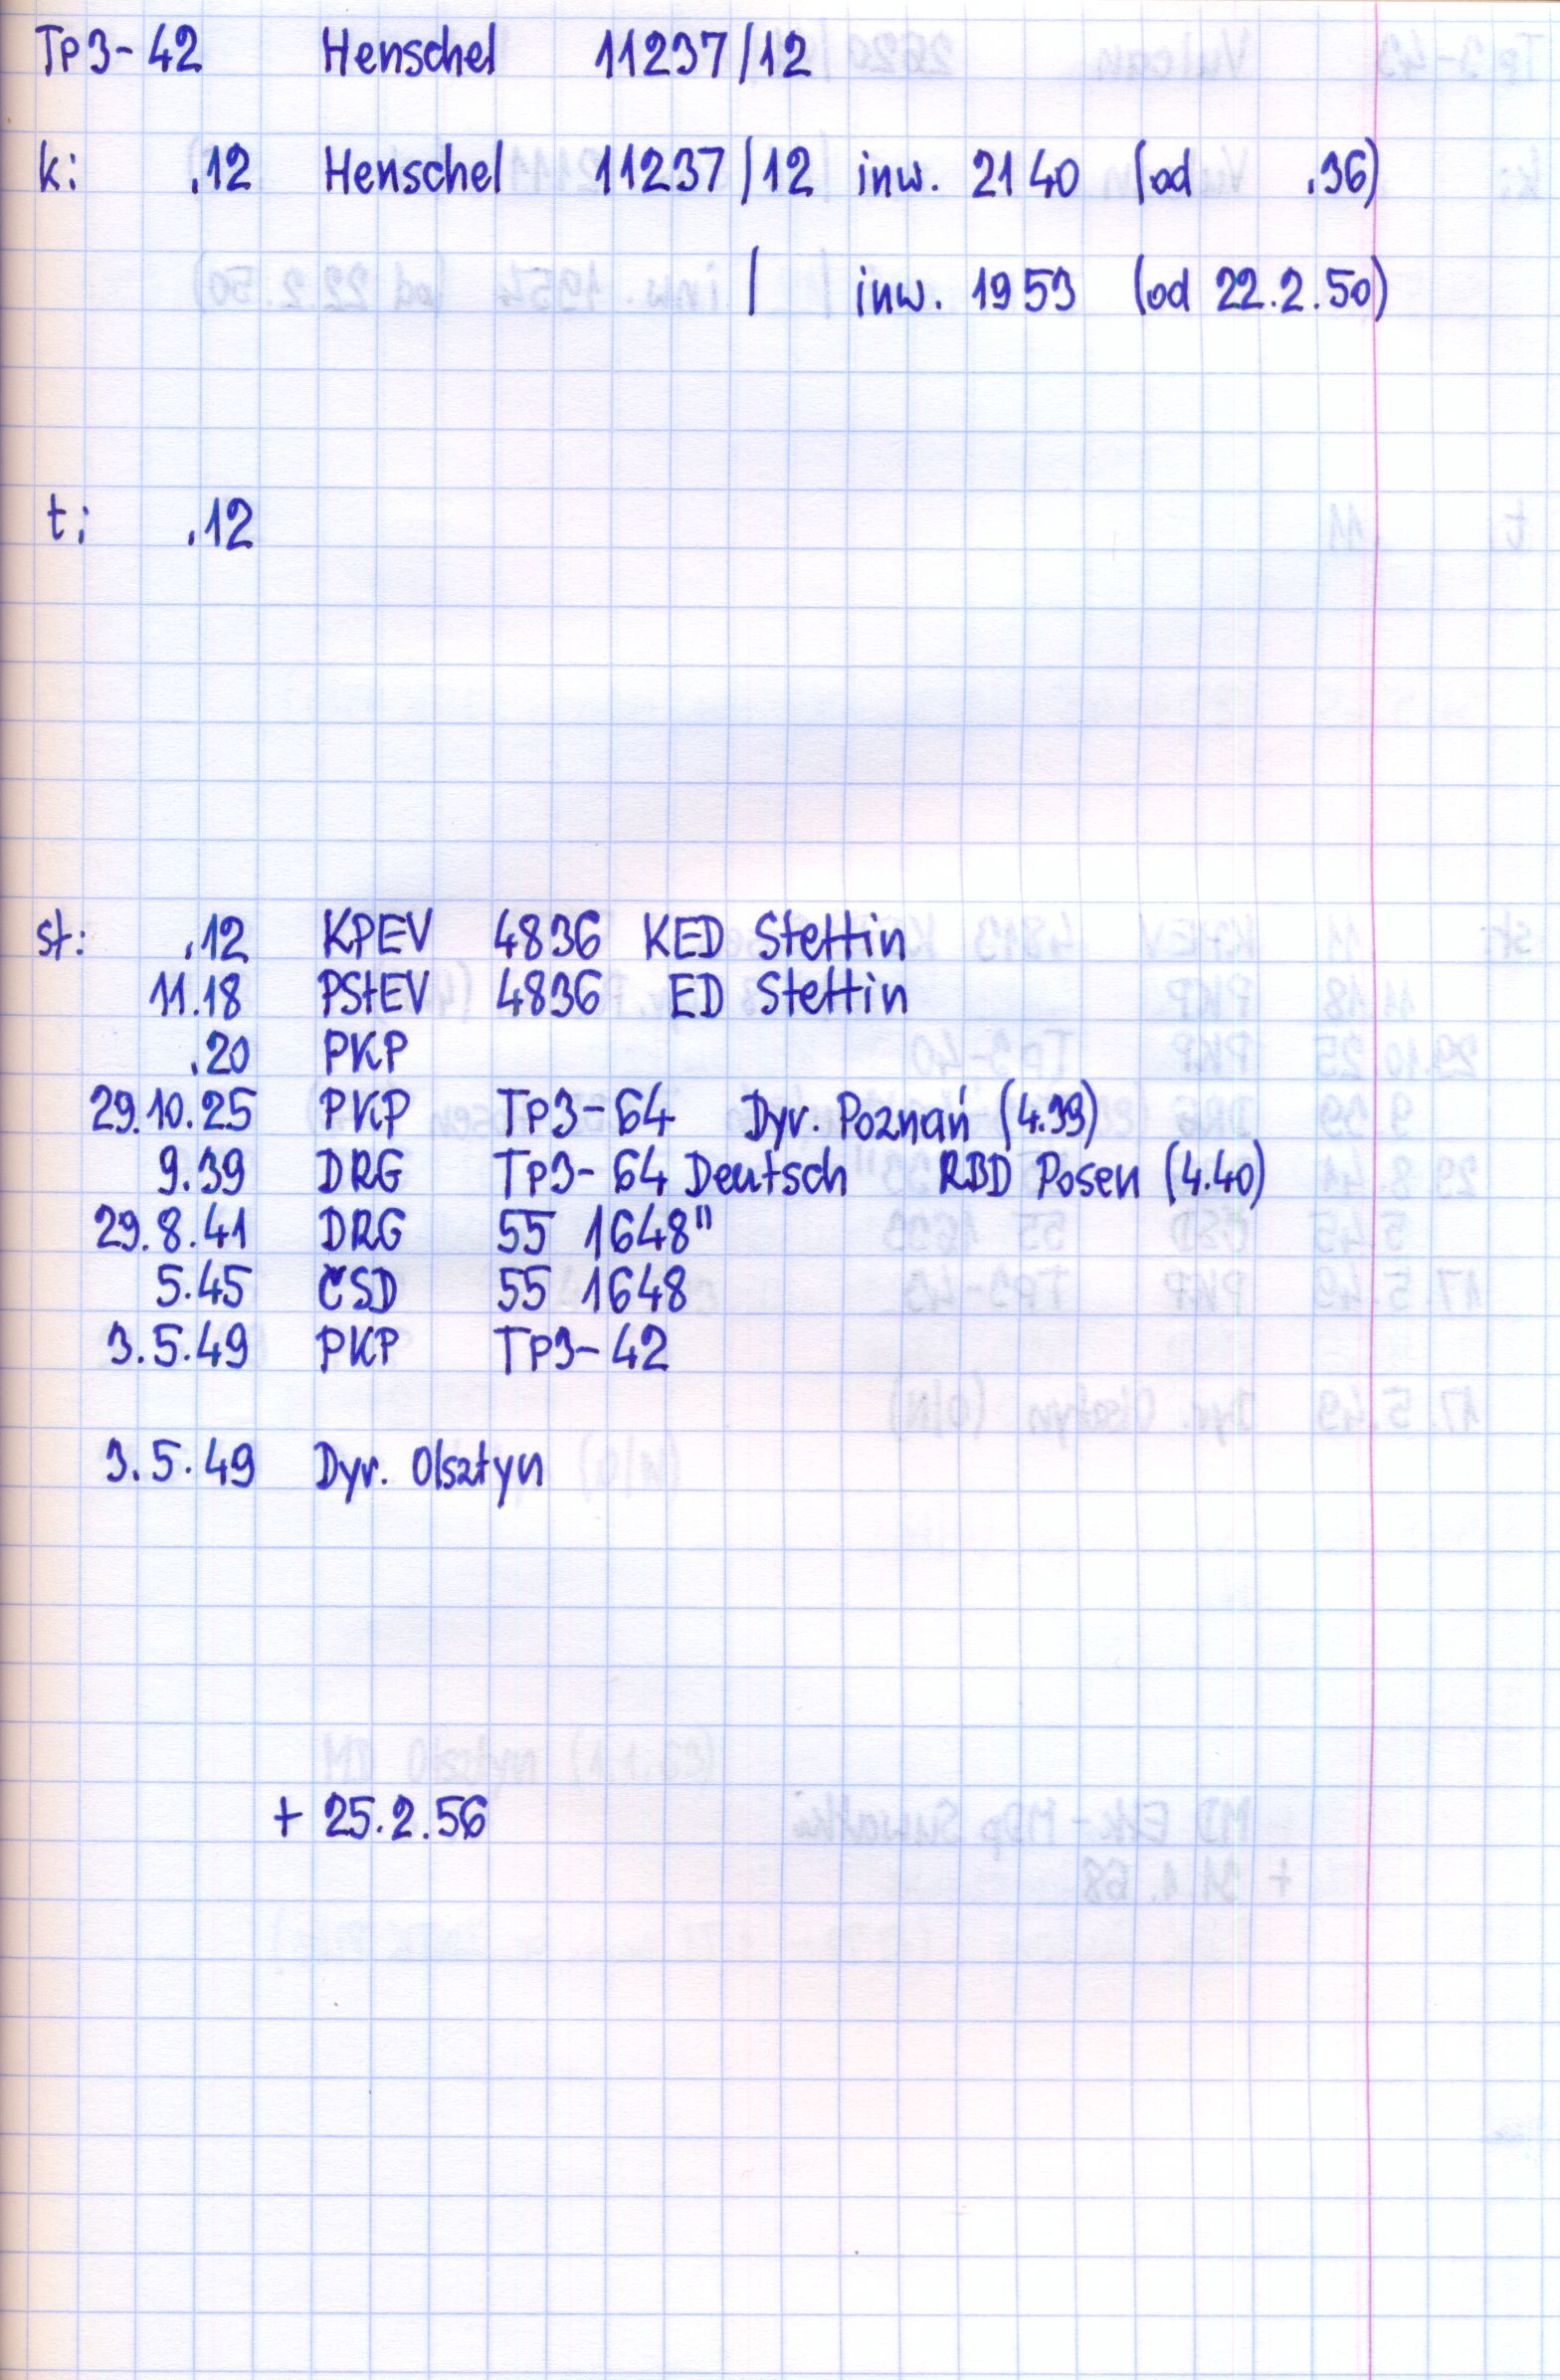 Tp3-42 Henschel 11237/12
k: .12 Henschel 11237/12 inw. 2140 (od .36)
/ inw. 1953 (od 22.2.50)
t: .12
st: .12 KPEV 4836 KED Stettin
11.18 PStEV 4836 ED Stettin
.20 PKP
29.10.25 PKP Tp3-64 Dyr. Poznań (4.39)
9.39 DRG Tp3-64 Deutsch RBD Posen (4.40)
29.8.41 DRG 55 1648"
5.45 ČSD 55 1648
3.5.49 PKP Tp3-42
3.5.49 Dyr. Olsztyn
+ 25.2.56